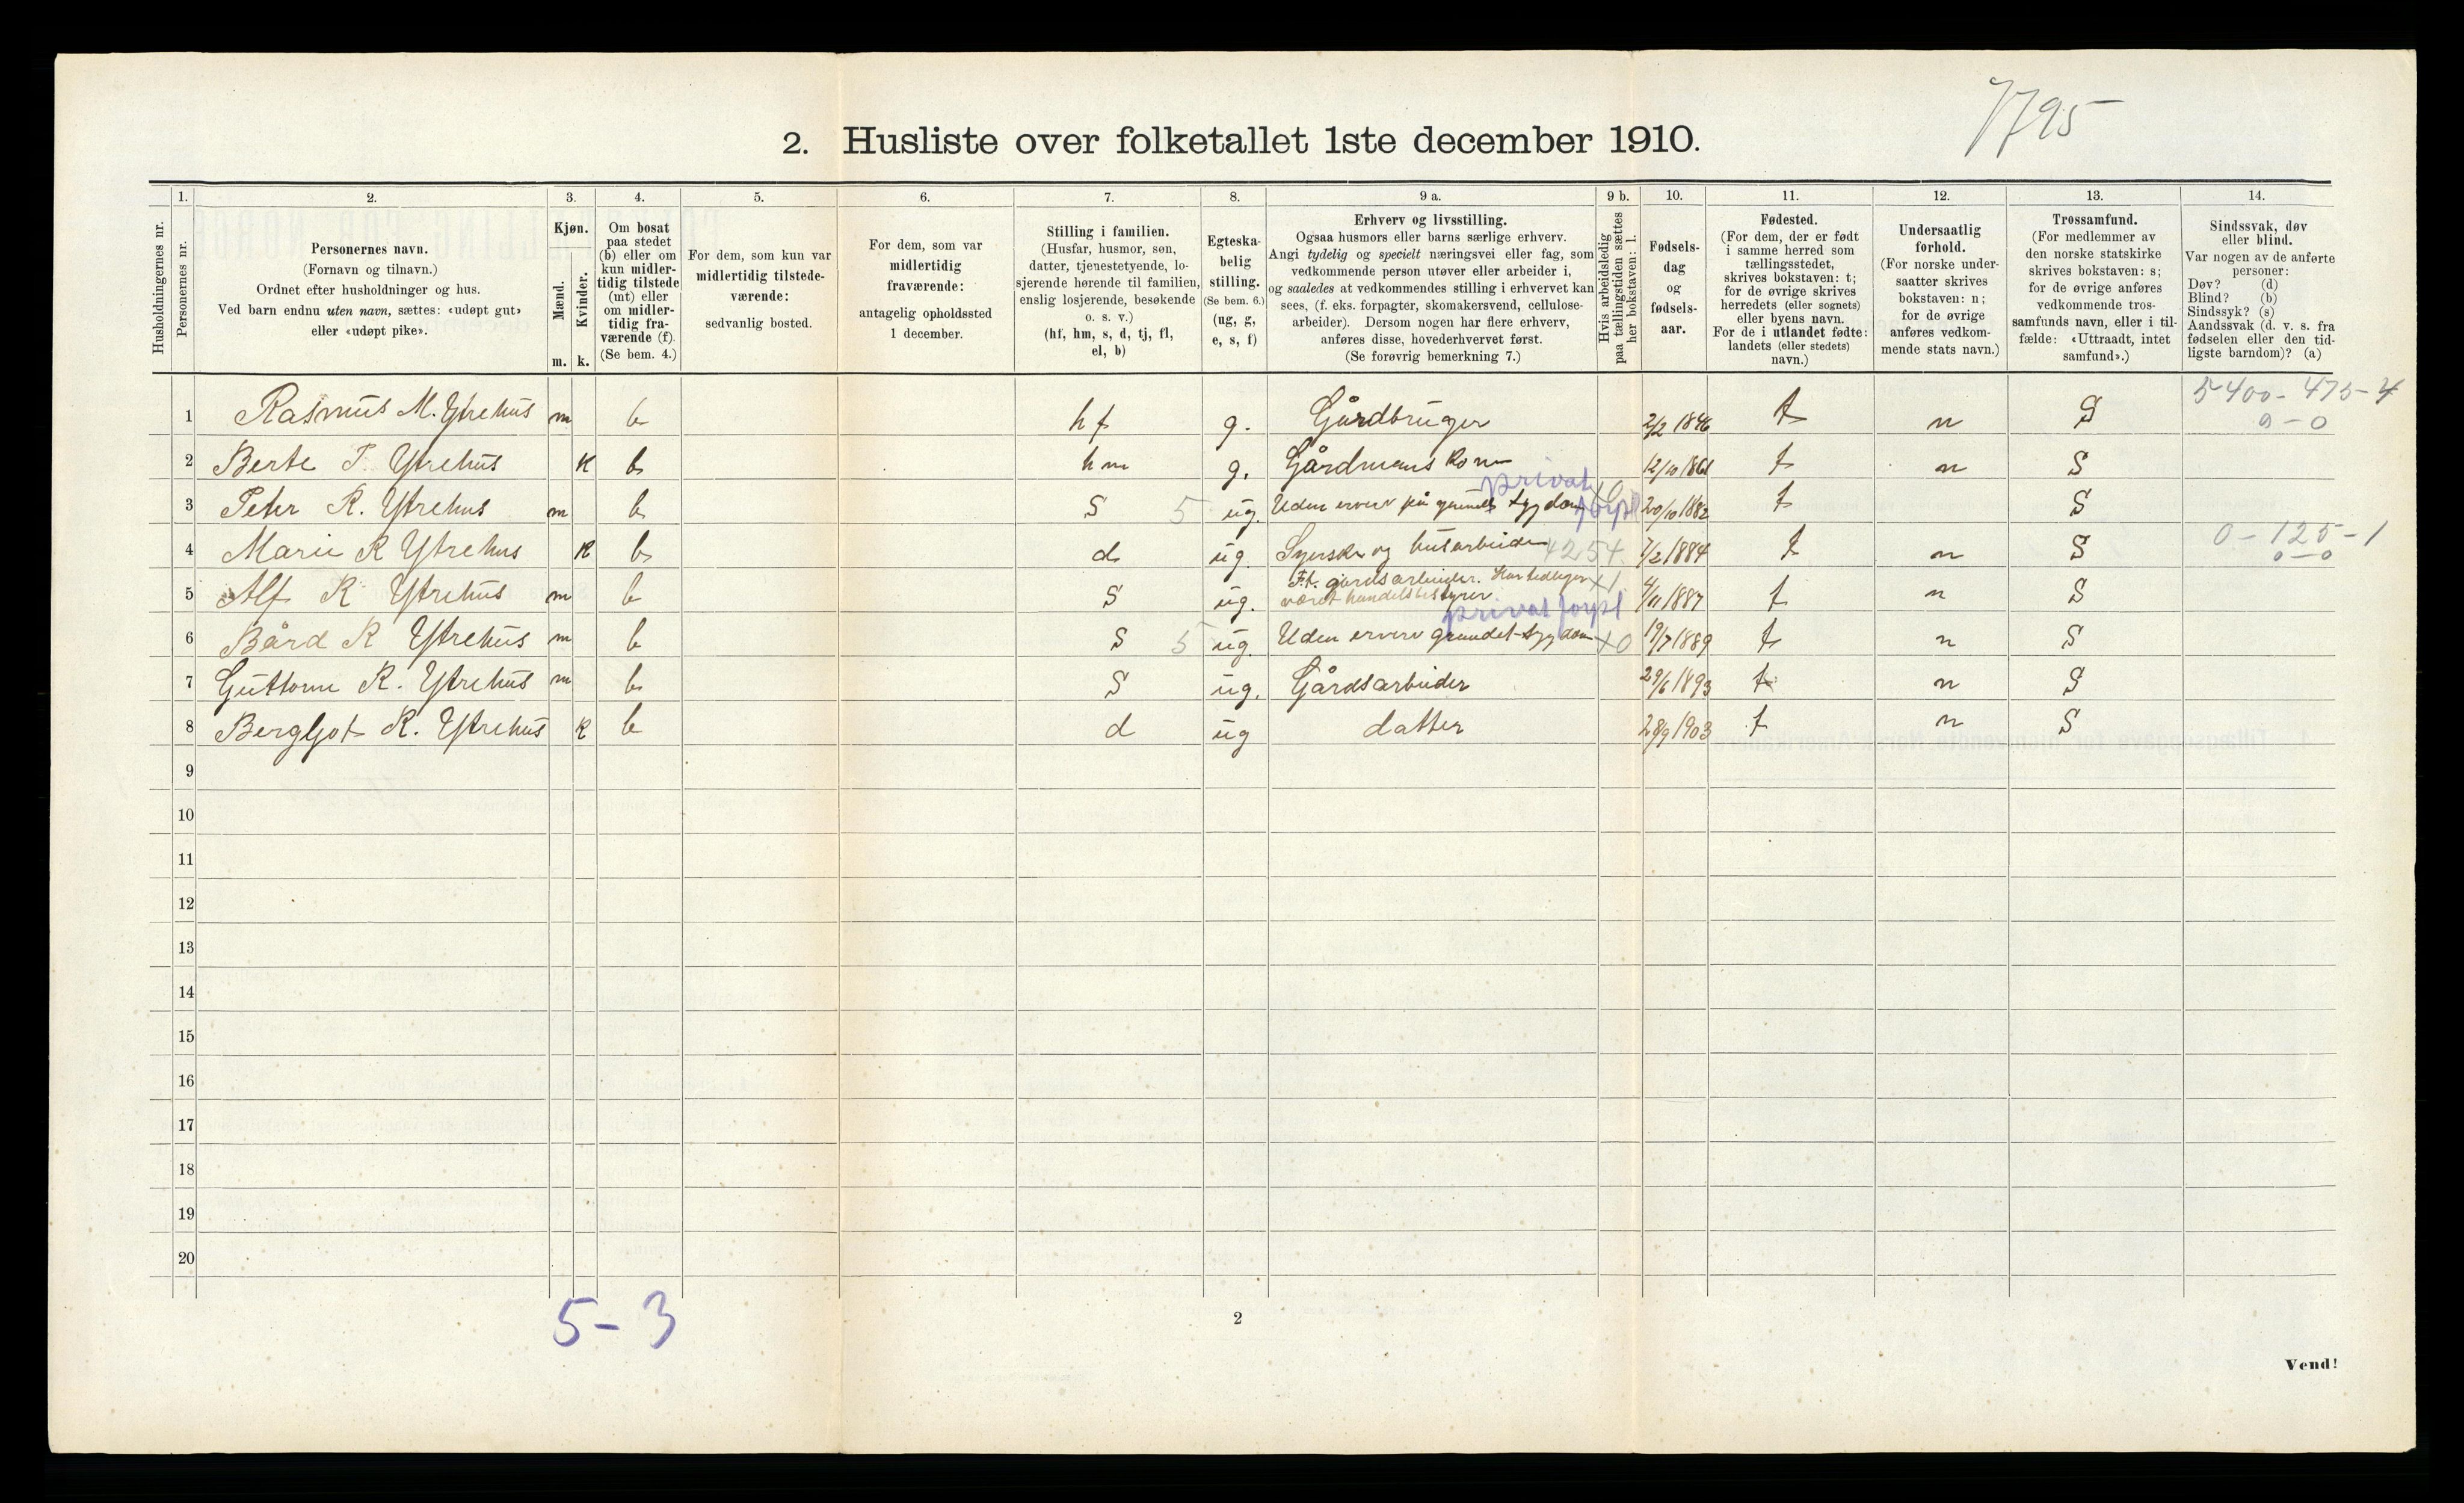 7795
2. Husliste over folketallet 1ste december 1910.
Husholdningernes nr.
1. Personernes nr.
2. Personernes navn. (Fornavn og tilnavn.) Ordnet efter husholdninger og hus. Ved barn endnu uten navn, sættes: «udøpt gut» eller «udøpt pike».
3. Kjøn. Mænd. m. Kvinder. k.
4. Om bosat paa stedet (b) eller om kun midlertidig tilstede (mt) eller om midlertidig fraværende (f). (Se bem. 4.)
5. For dem, som kun var midlertidig tilstedeværende: sedvanlig bosted.
6. For dem, som var midlertidig fraværende: antagelig opholdssted 1 december.
7. Stilling i familien. (Husfar, husmor, søn, datter, tjenestetyende, losjerende hørende til familien, enslig losjerende, besøkende o. s. v.) (hf, hm, s, d, tj, fl, el, b)
8. Egteskabelig stilling. (Se bem. 6.) (ug, g, e, s, f)
9 a. Erhverv og livsstilling. Ogsaa husmors eller barns særlige erhverv. Angi tydelig og specielt næringsvei eller fag, som vedkommende person utøver eller arbeider i, og saaledes at vedkommendes stilling i erhvervet kan sees, (f. eks. forpagter, skomakersvend, cellulosearbeider). Dersom nogen har flere erhverv, anføres disse, hovederhvervet først. (Se forøvrig bemerkning 7.)
9 b. Hvis arbeidsledig paa tællingstiden sættes her bokstaven: l.
10. Fødselsdag og fødselsaar.
11. Fødested. (For dem, der er født i samme herred som tællingsstedet, skrives bokstaven: t; for de øvrige skrives herredets (eller sognets) eller byens navn. For de i utlandet fødte: landets (eller stedets) navn.)
12. Undersaatlig forhold. (For norske undersaatter skrives bokstaven: n; for de øvrige anføres vedkommende stats navn.)
13. Trossamfund. (For medlemmer av den norske statskirke skrives bokstaven: s; for de øvrige anføres vedkommende trossamfunds navn, eller i tilfælde: «Uttraadt, intet samfund».)
14. Sindssvak, døv eller blind. Var nogen av de anførte personer: Døv? (d) Blind? (b) Sindssyk? (s) Aandssvak (d. v. s. fra fødselen eller den tidligste barndom)? (a)
1 Rasmus M. Ytrehus m b hf g. Gårdbruger 2/2 1846 t n S 5-400-475-4 0-0
2 Berte P. Ytrehus K b hm g. Gårdmans Kone 12/10 1861 t n S
3 Peter R. Ytrehus m b S 5 ug. Uden erverv på grund sygdom privat forpl x0 20/10 1882 t S
4 Marie R Ytrehus K b d ug. Syerske og husarbeide 4254 7/2 1884 t n S 0-125-1 0-0
5 Alf R Ytrehus m b S ug. F.t. gårdsarbeider. Har tidligere været handelsbestyrer x1 4/11 1887 t n S
6 Bård R Ytrehus m b S 5 ug. Uden erverv grundet sygdom privat forpl x0 19/7 1889 t n S
7 Guttorm R. Ytrehus m b S ug. Gårdsarbeider 29/6 1893 t n S
8 Bergljot R. Ytrehus K b d ug datter 28/9 1903 t n S
9
10
11
12
13
14
15
16
17
18
19
20
5-3
2
Vend!